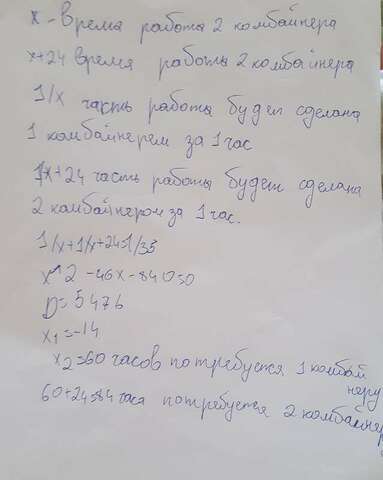 x - время работы 2 комбайнера
x+24 время работы 2 комбайнера
1/x часть работы будет сделана
1 комбайнерем за 1 час
1/x+24 часть работы будет сделана
2 комбайнером за 1 час.
1/x+1/x+24=1/35
x^2-46x-840=0
D=5476
x1=-14
x2=60 часов потребуется 1 комбайнеру
60+24=84 часа потребуется 2 комбайнеру